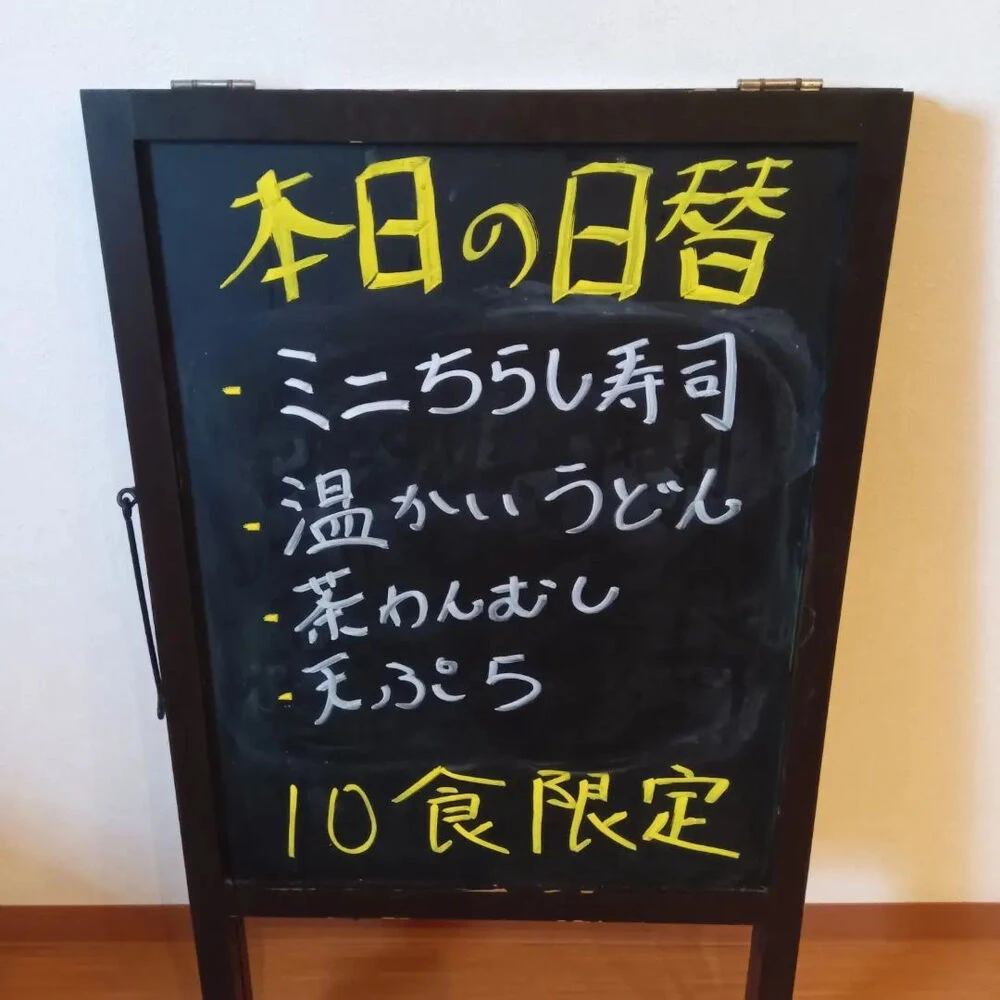 本日の日替
- ミニちらし寿司
- 温かいうどん
- 茶わんむし
- 天ぷら
10食限定